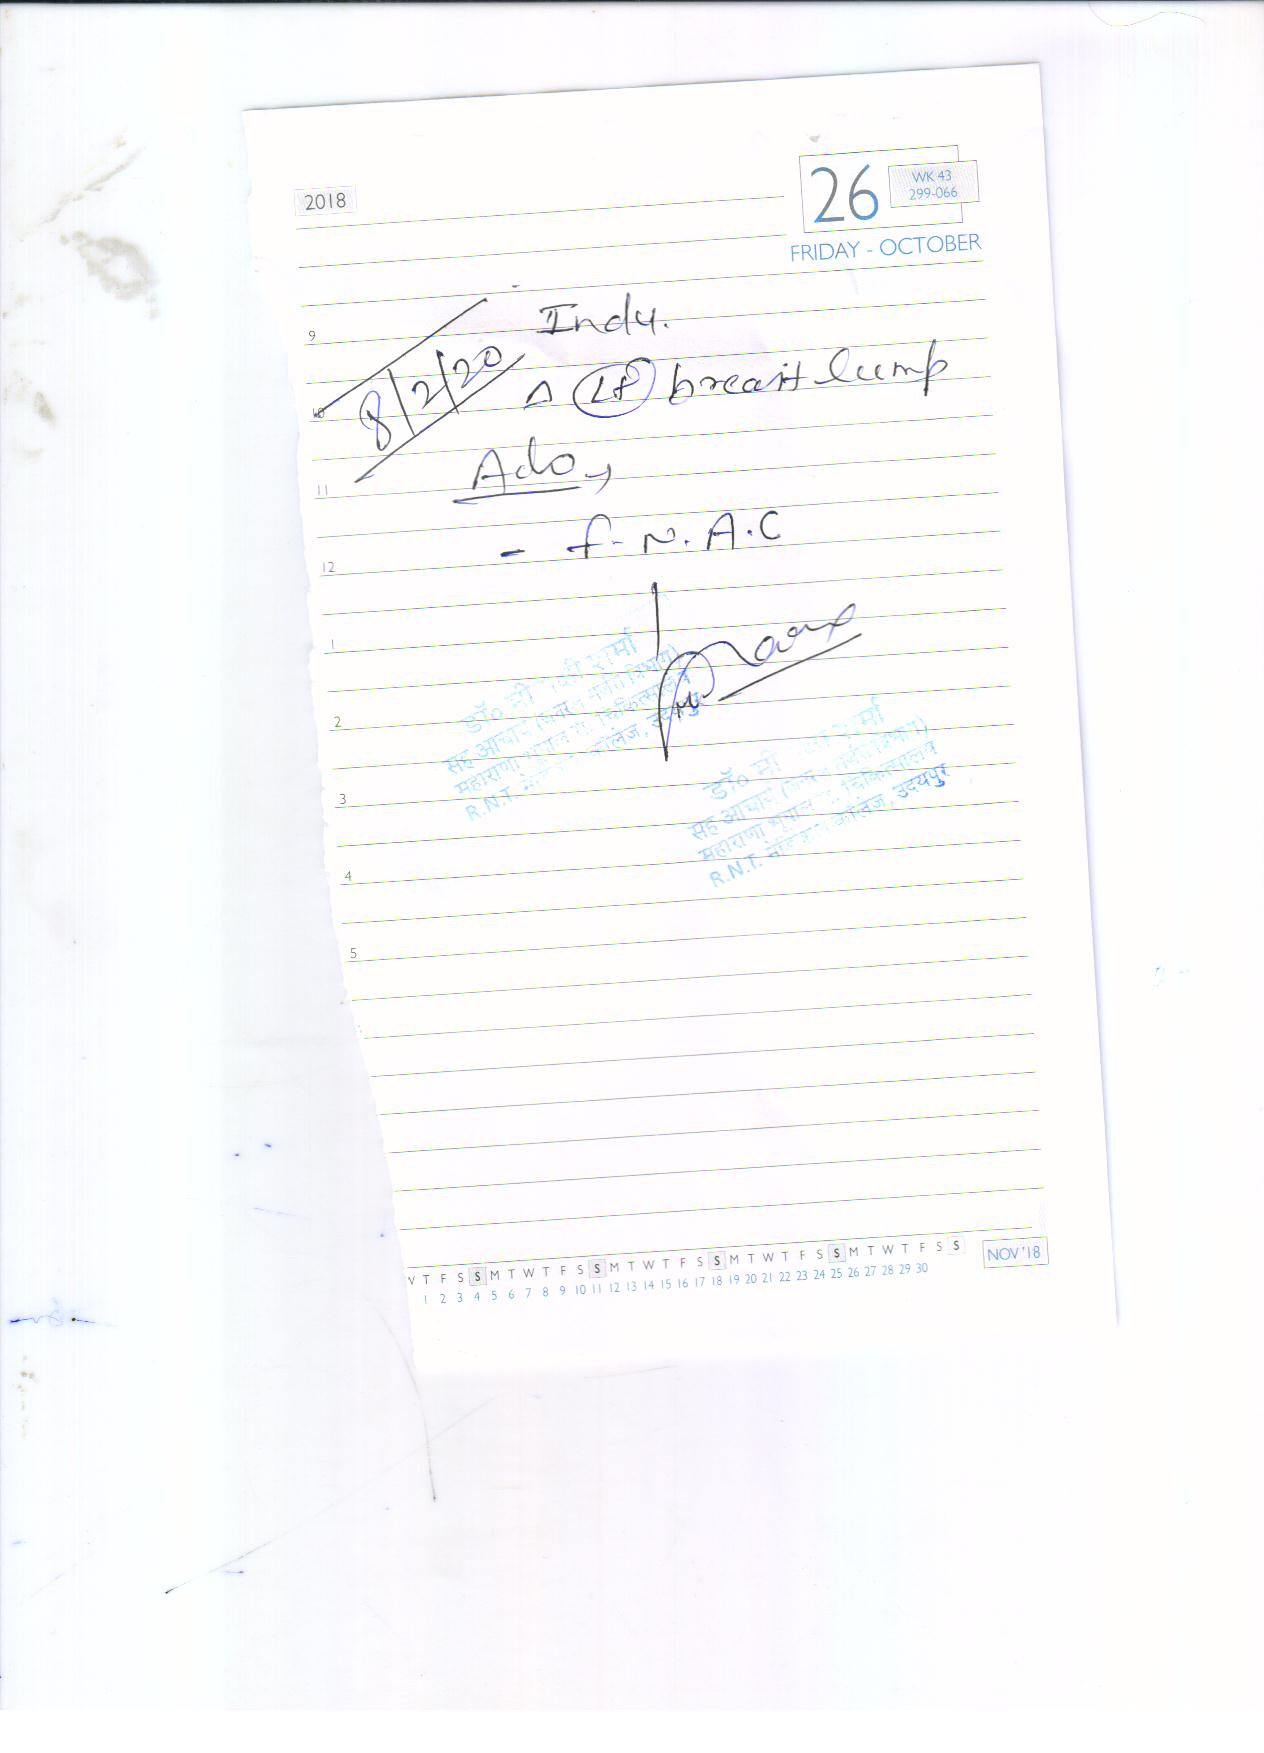 2018
26
WK 43
299-066
FRIDAY - OCTOBER
9
Indu.
8/2/20
Δ Lt breast lump
10
Adv,
11
- F.N.A.C
12
1
डॉ० मी शर्मा
सह आचार्य (जनरल सर्जरी विभाग)
महाराणा भूपाल चिकित्सालय
R.N.T. मेडिकल कॉलेज, उदयपुर
2
डॉ० मी शर्मा
सह आचार्य (जनरल सर्जरी विभाग)
महाराणा भूपाल चिकित्सालय
R.N.T. मेडिकल कॉलेज, उदयपुर
3
4
5
T F S S M T W T F S S M T W T F S S M T W T F S S M T W T F S S
NOV'18
1 2 3 4 5 6 7 8 9 10 11 12 13 14 15 16 17 18 19 20 21 22 23 24 25 26 27 28 29 30